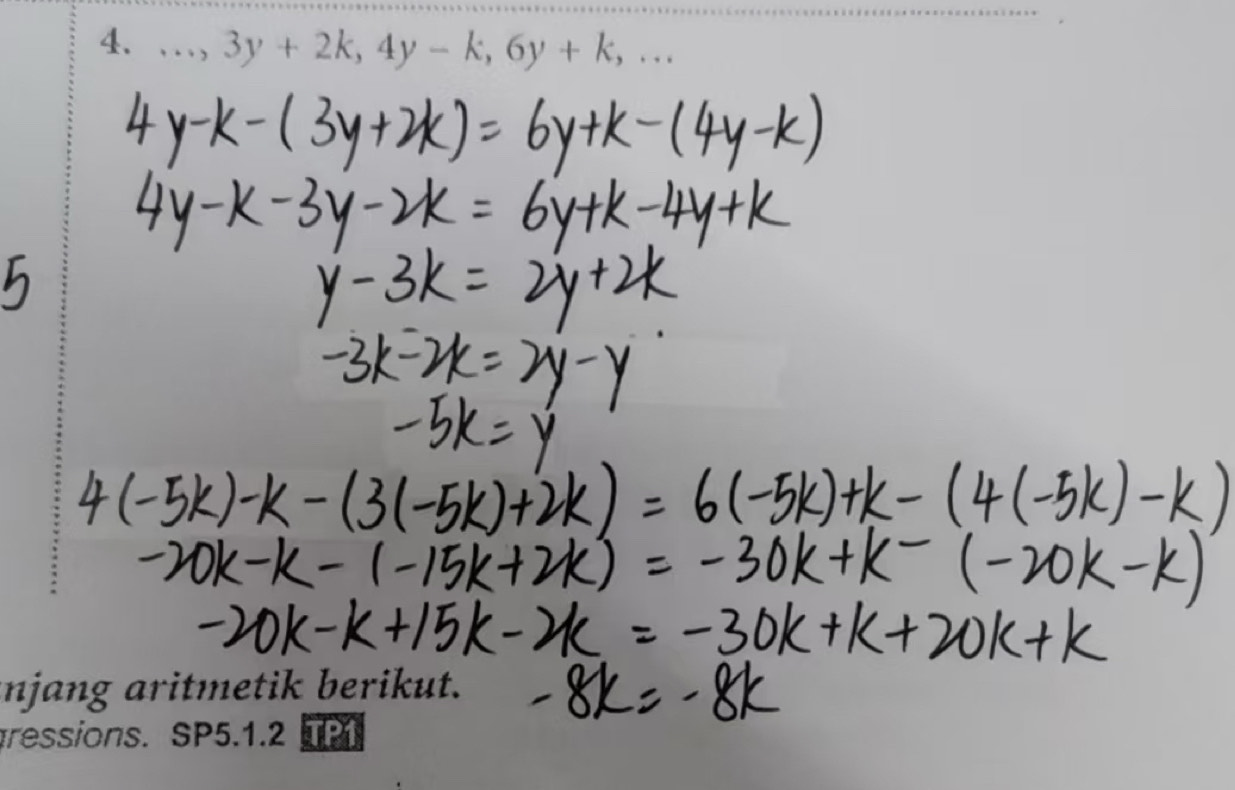 4. ..., 3y + 2k, 4y – k, 6y + k, ...
4y-k-(3y+2k)= 6y+k-(4y-k)
4y-k-3y-2k = 6y+k-4y+k
5
y-3k = 2y+2k
-3k-2k = 2y-y
-5k = y
4(-5k)-k-(3(-5k)+2k) = 6(-5k)+k-(4(-5k)-k)
-20k-k-(-15k+2k) = -30k+k-(-20k-k)
-20k-k+15k-2k = -30k+k+20k+k
njang aritmetik berikut.
-8k = -8k
gressions. SP5.1.2 TP1